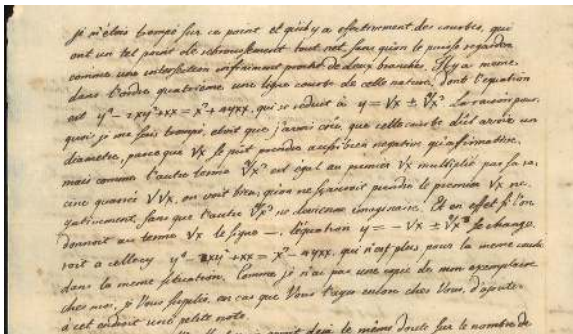 je m'étois trompé sur ce point et qu'il y a effectivement des courbes, qui
ont un tel point de rebroussement tout net sans qu'on le puisse regarder
comme une intersection infiniment proche de deux branches. Il y a meme
dans l'ordre quatrieme une ligne courbe de cette nature, dont l'equation
est y⁴ - 2xy² + xx = x³ + 4yxx, qui se reduit à y = √x ± ∜x³ La raison pour-
quoi je me suis trompé, etoit que j'avois crû, que cette courbe dût avoir un
diametre, parce que √x se peut prendre aussi bien negative qu'affirmative,
mais comme l'autre terme ∜x³ est égal au premier √x multiplié par sa ra-
cine quarrée √√x, on voit bien, qu'on ne sauroit prendre le premier √x ne-
gativement, sans que l'autre ∜x³ ne devienne imaginaire. Et en effet si l'on
donnoit au terme √x le signe -, l'équation y = - √x ± ∜x³ se change-
roit a cellecy y⁴ - 2xy² + xx = x³ - 4yxx, qui n'est plus pour la meme courbe
dans la meme situation. Comme je n'ai pas une copie de mon exemplaire
chez moi, je Vous supplie, en cas que Vous l'ayez encore chez Vous, d'ajouter
à cet endroit une petite note.
deja le même doute sur le nombre de